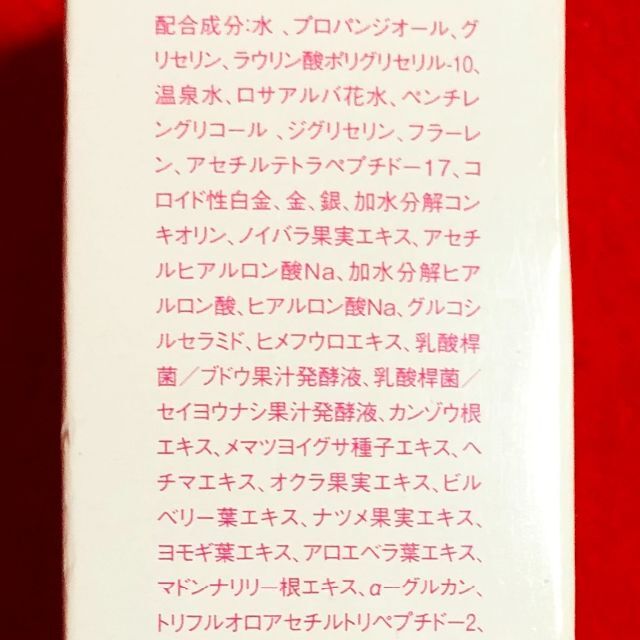 配合成分:水 、プロパンジオール、グ
リセリン、ラウリン酸ポリグリセリル-10、
温泉水、ロサアルバ花水、ペンチレ
ングリコール 、ジグリセリン、フラーレ
ン、アセチルテトラペプチドー17、コ
ロイド性白金、金、銀、加水分解コン
キオリン、ノイバラ果実エキス、アセチ
ルヒアルロン酸Na、加水分解ヒア
ルロン酸、ヒアルロン酸Na、グルコシ
ルセラミド、ヒメフウロエキス、乳酸桿
菌／ブドウ果汁発酵液、乳酸桿菌／
セイヨウナシ果汁発酵液、カンゾウ根
エキス、メマツヨイグサ種子エキス、ヘ
チマエキス、オクラ果実エキス、ビル
ベリー葉エキス、ナツメ果実エキス、
ヨモギ葉エキス、アロエベラ葉エキス、
マドンナリリー根エキス、α－グルカン、
トリフルオロアセチルトリペプチドー2、